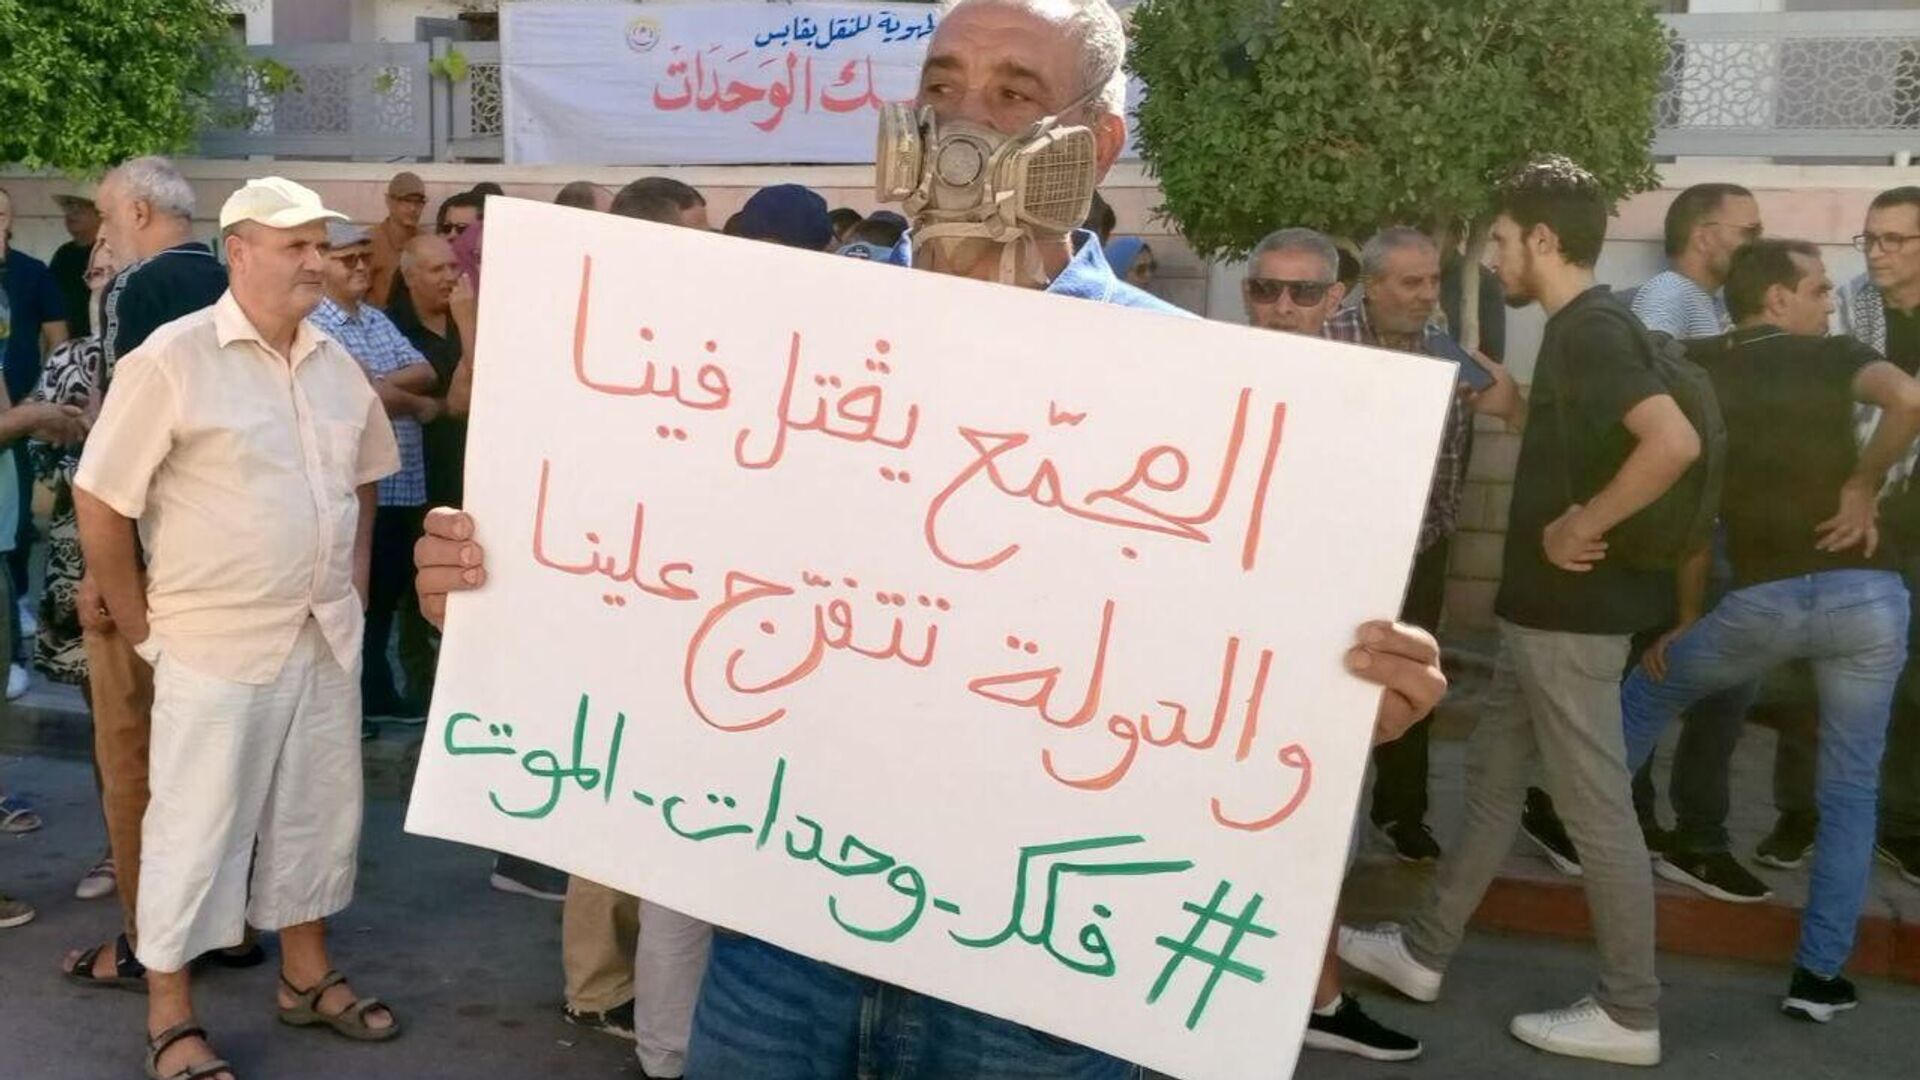 جهوية للنقل بقابس
ـك الْوَحَدَات
المجمّع يڨتل فينا
والدولة تتفرّج علينا
#فكك_وحدات_الموت